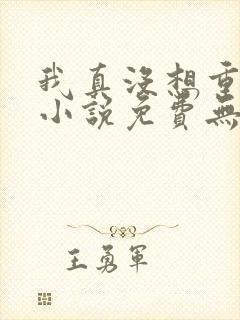 我真没想重
小說免費無
王勇軍